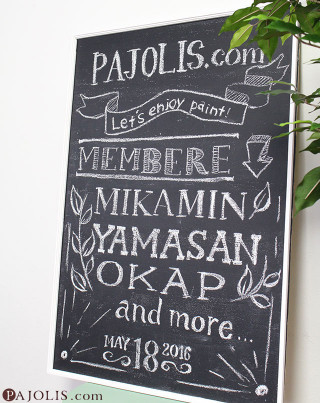 PAJOLIS.com
Let's enjoy paint!
MEMBERE
MIKAMIN
YAMASAN
OKAP
and more...
MAY 18 2016
PAJOLIS.com